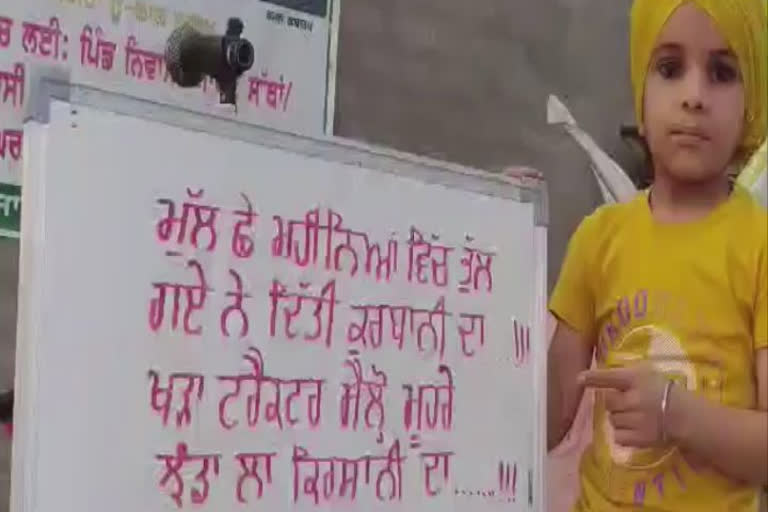 ਚ ਲਈ: ਪਿੰਡ ਨਿਵਾ
ਸੱਥਾਂ/
ਮੁੱਲ ਛੇ ਮਹੀਨਿਆਂ ਵਿੱਚ ਭੁੱਲ
ਗਏ ਨੇ ਦਿੱਤੀ ਕੁਰਬਾਨੀ ਦਾ ...!!!
ਖੜਾ ਟਰੈਕਟਰ ਮੈਲੋਂ ਮੂਹਰੇ
ਝੰਡਾ ਲਾ ਕਿਰਸਾਨੀ ਦਾ ......!!!